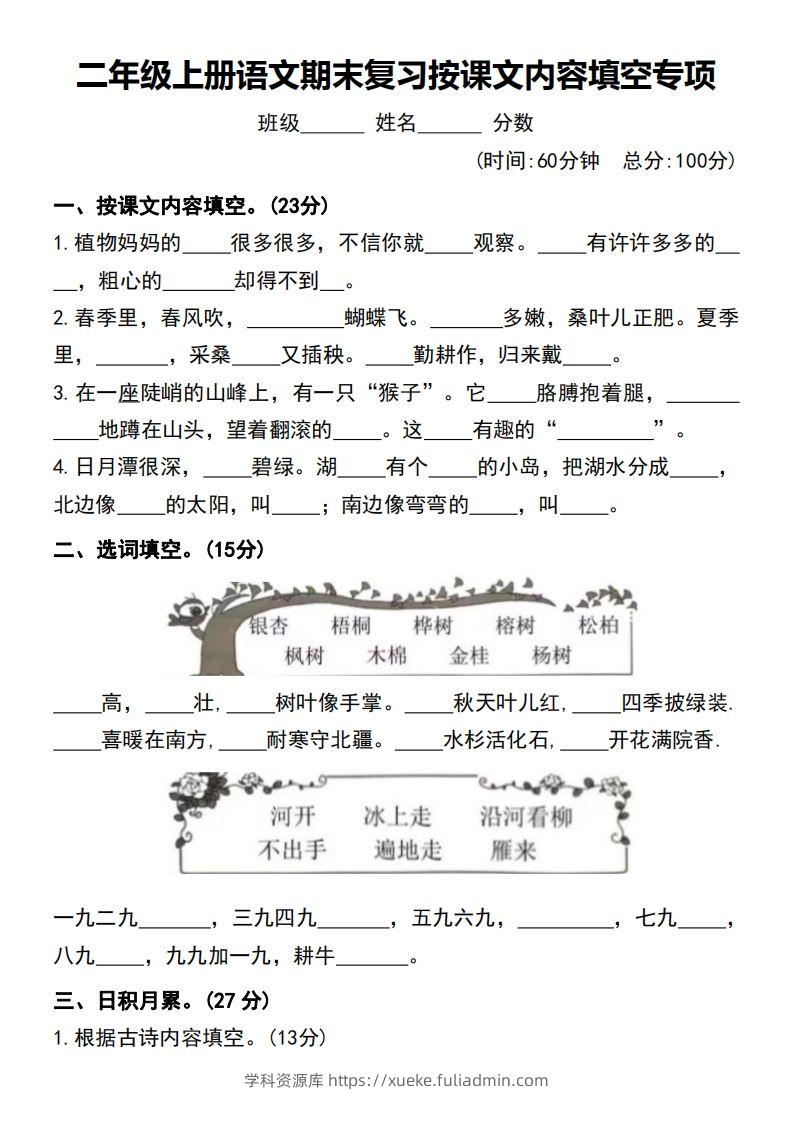 二年级上册语文期末复习按课文内容填空专项
班级______ 姓名______ 分数
(时间:60分钟 总分:100分)
一、按课文内容填空。(23分)
1.植物妈妈的____很多很多，不信你就____观察。____有许许多多的__
__，粗心的______却得不到__。
2.春季里，春风吹，________蝴蝶飞。______多嫩，桑叶儿正肥。夏季
里，______，采桑____又插秧。____勤耕作，归来戴____。
3.在一座陡峭的山峰上，有一只“猴子”。它____胳膊抱着腿，______
____地蹲在山头，望着翻滚的____。这____有趣的“________”。
4.日月潭很深，____碧绿。湖____有个____的小岛，把湖水分成____，
北边像____的太阳，叫____；南边像弯弯的____，叫____。
二、选词填空。(15分)
银杏 梧桐 桦树 榕树 松柏
枫树 木棉 金桂 杨树
____高，____壮,____树叶像手掌。____秋天叶儿红,____四季披绿装.
____喜暖在南方,____耐寒守北疆。____水杉活化石,____开花满院香.
河开 冰上走 沿河看柳
不出手 遍地走 雁来
一九二九______，三九四九______，五九六九，________，七九____，
八九____，九九加一九，耕牛______。
三、日积月累。(27 分)
1.根据古诗内容填空。(13分)
学科资源库 https://xueke.fuliadmin.com